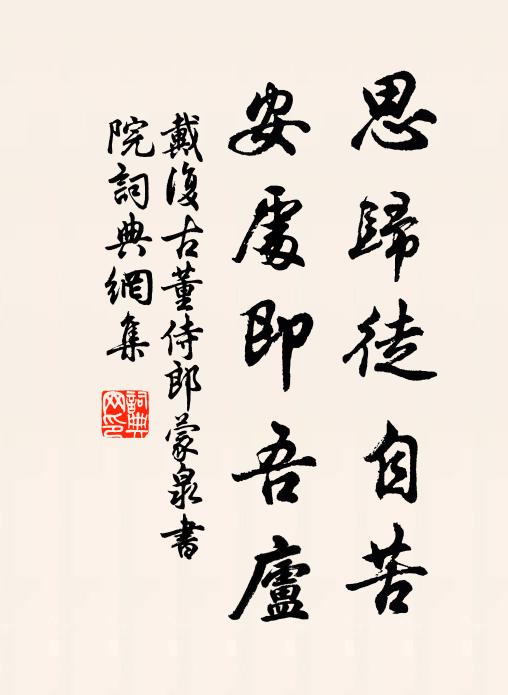 思歸徒自苦
安處即吾廬
戴復古董侍郎蒙泉書
院詞典網集
詞典網印